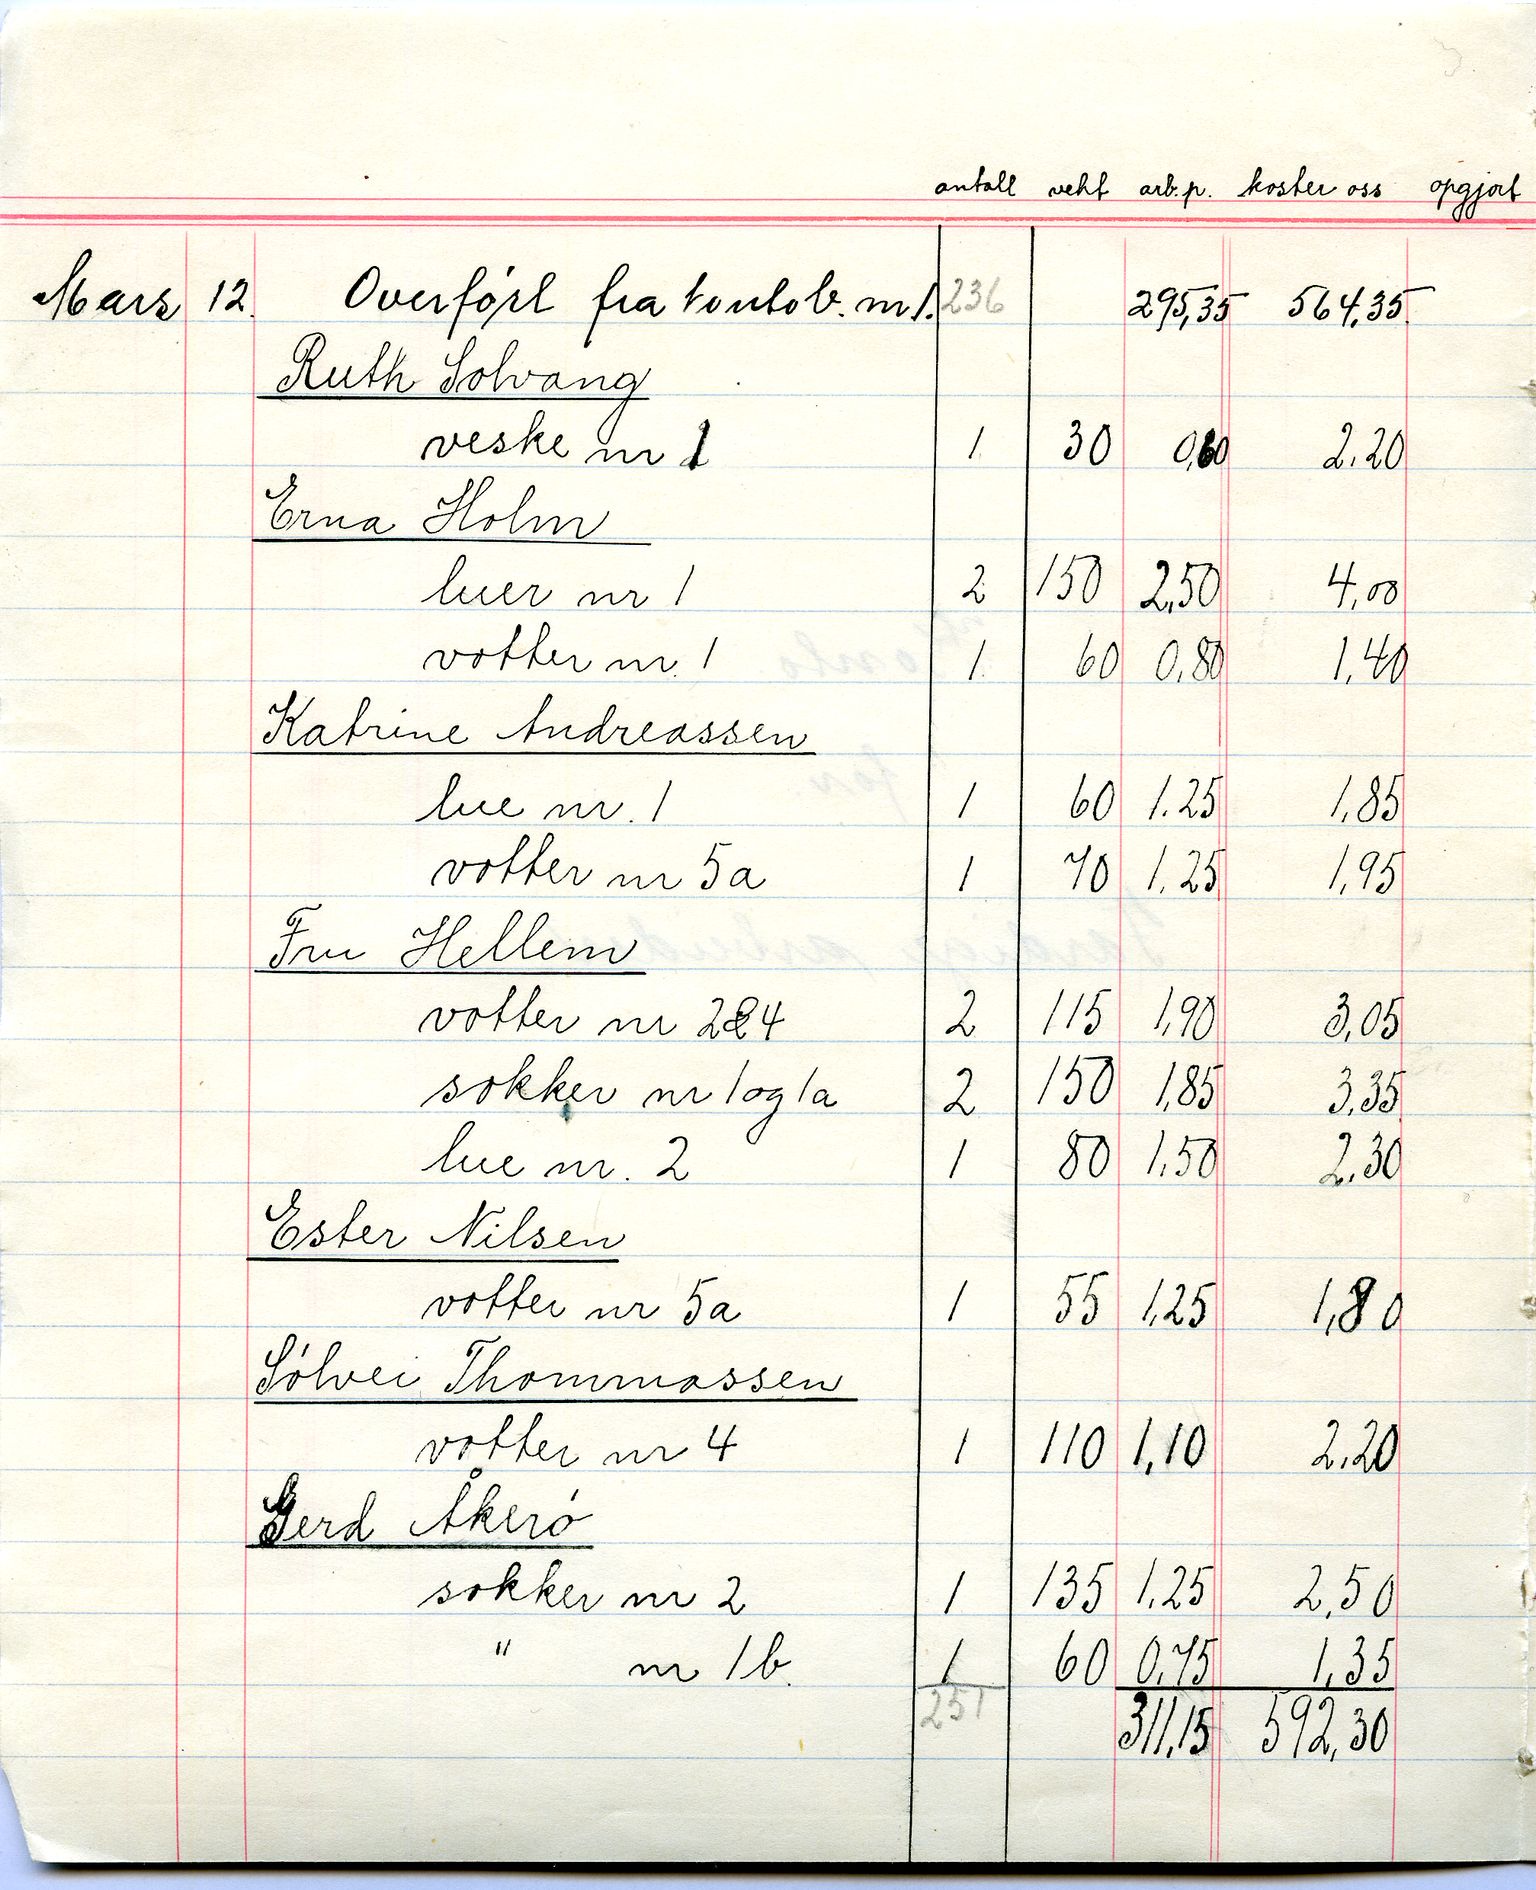 antall vekt arb.p. koster oss opgjort
Mars 12. Overført fra kontob. nr 1. 236 295,35 564,35.
Ruth Solvang
veske nr 1 1 30 0,60 2.20
Erna Holm
luer nr 1 2 150 2,50 4,00
votter nr. 1 1 60 0,80 1,40
Katrine Andreassen
lue nr. 1 1 60 1.25 1,85
votter nr 5a 1 70 1,25 1,95
Fru Hellem
votter nr 2&4 2 115 1,90 3,05
sokker nr 1 og 1a 2 150 1,85 3,35
lue nr. 2 1 80 1,50 2.30
Ester Nilsen
votter nr 5a 1 55 1,25 1,80
Sólvei Thommassen
votter nr 4 1 110 1,10 2.20
Gerd Åkeró
sokker nr 2 1 135 1,25 2,50
" nr 1b. 1 60 0,75 1,35
251 311,15 592,30